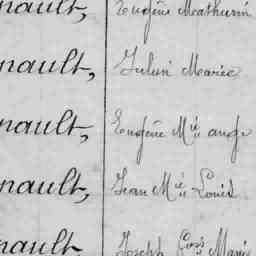 nault, Eugène Mathurin
nault, Julien Marie
nault, Eugène M^ie ange
nault, Jean M^ie Louis
nault, Joseph Marie